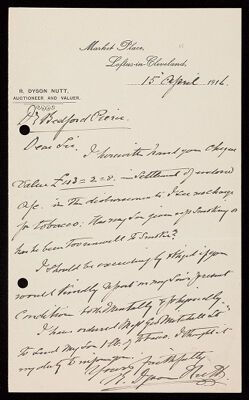 Market Place,
Loftus-in-Cleveland,
15 April 1916.
R. DYSON NUTT,
AUCTIONEER AND VALUER.
Dr Bedford Pierce
Dear Sir.
I herewith hand you Cheque
Value £43=2=8. in Settlement of enclosed
a/c. in the disbursements I see no charge
for tobacco. Has my Son given up Smoking or
has he been too unwell to Smoke?
I should be exceedingly obliged if you
would kindly report on my Son's present
Condition both Mentally & physically.
I have ordered
to Send my Son 1 lb. of tobacco. I thought it
my duty to inform you.
Yours faithfully
R. Dyson Nutt